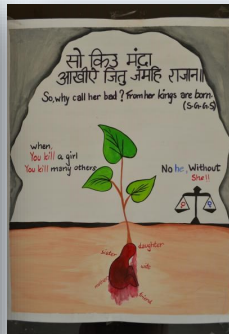 सो किउ मंदा
आखीऐ जितु जंमहि राजान॥
So, why call her bad? From her kings are born.
(S.G.G.S)
when
You kill a girl
You kill many others
No he, Without
She!!
sister
daughter
wife
mother
friend